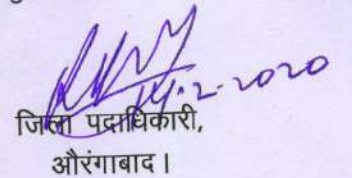 14.2.2020
जिला पदाधिकारी,
औरंगाबाद।